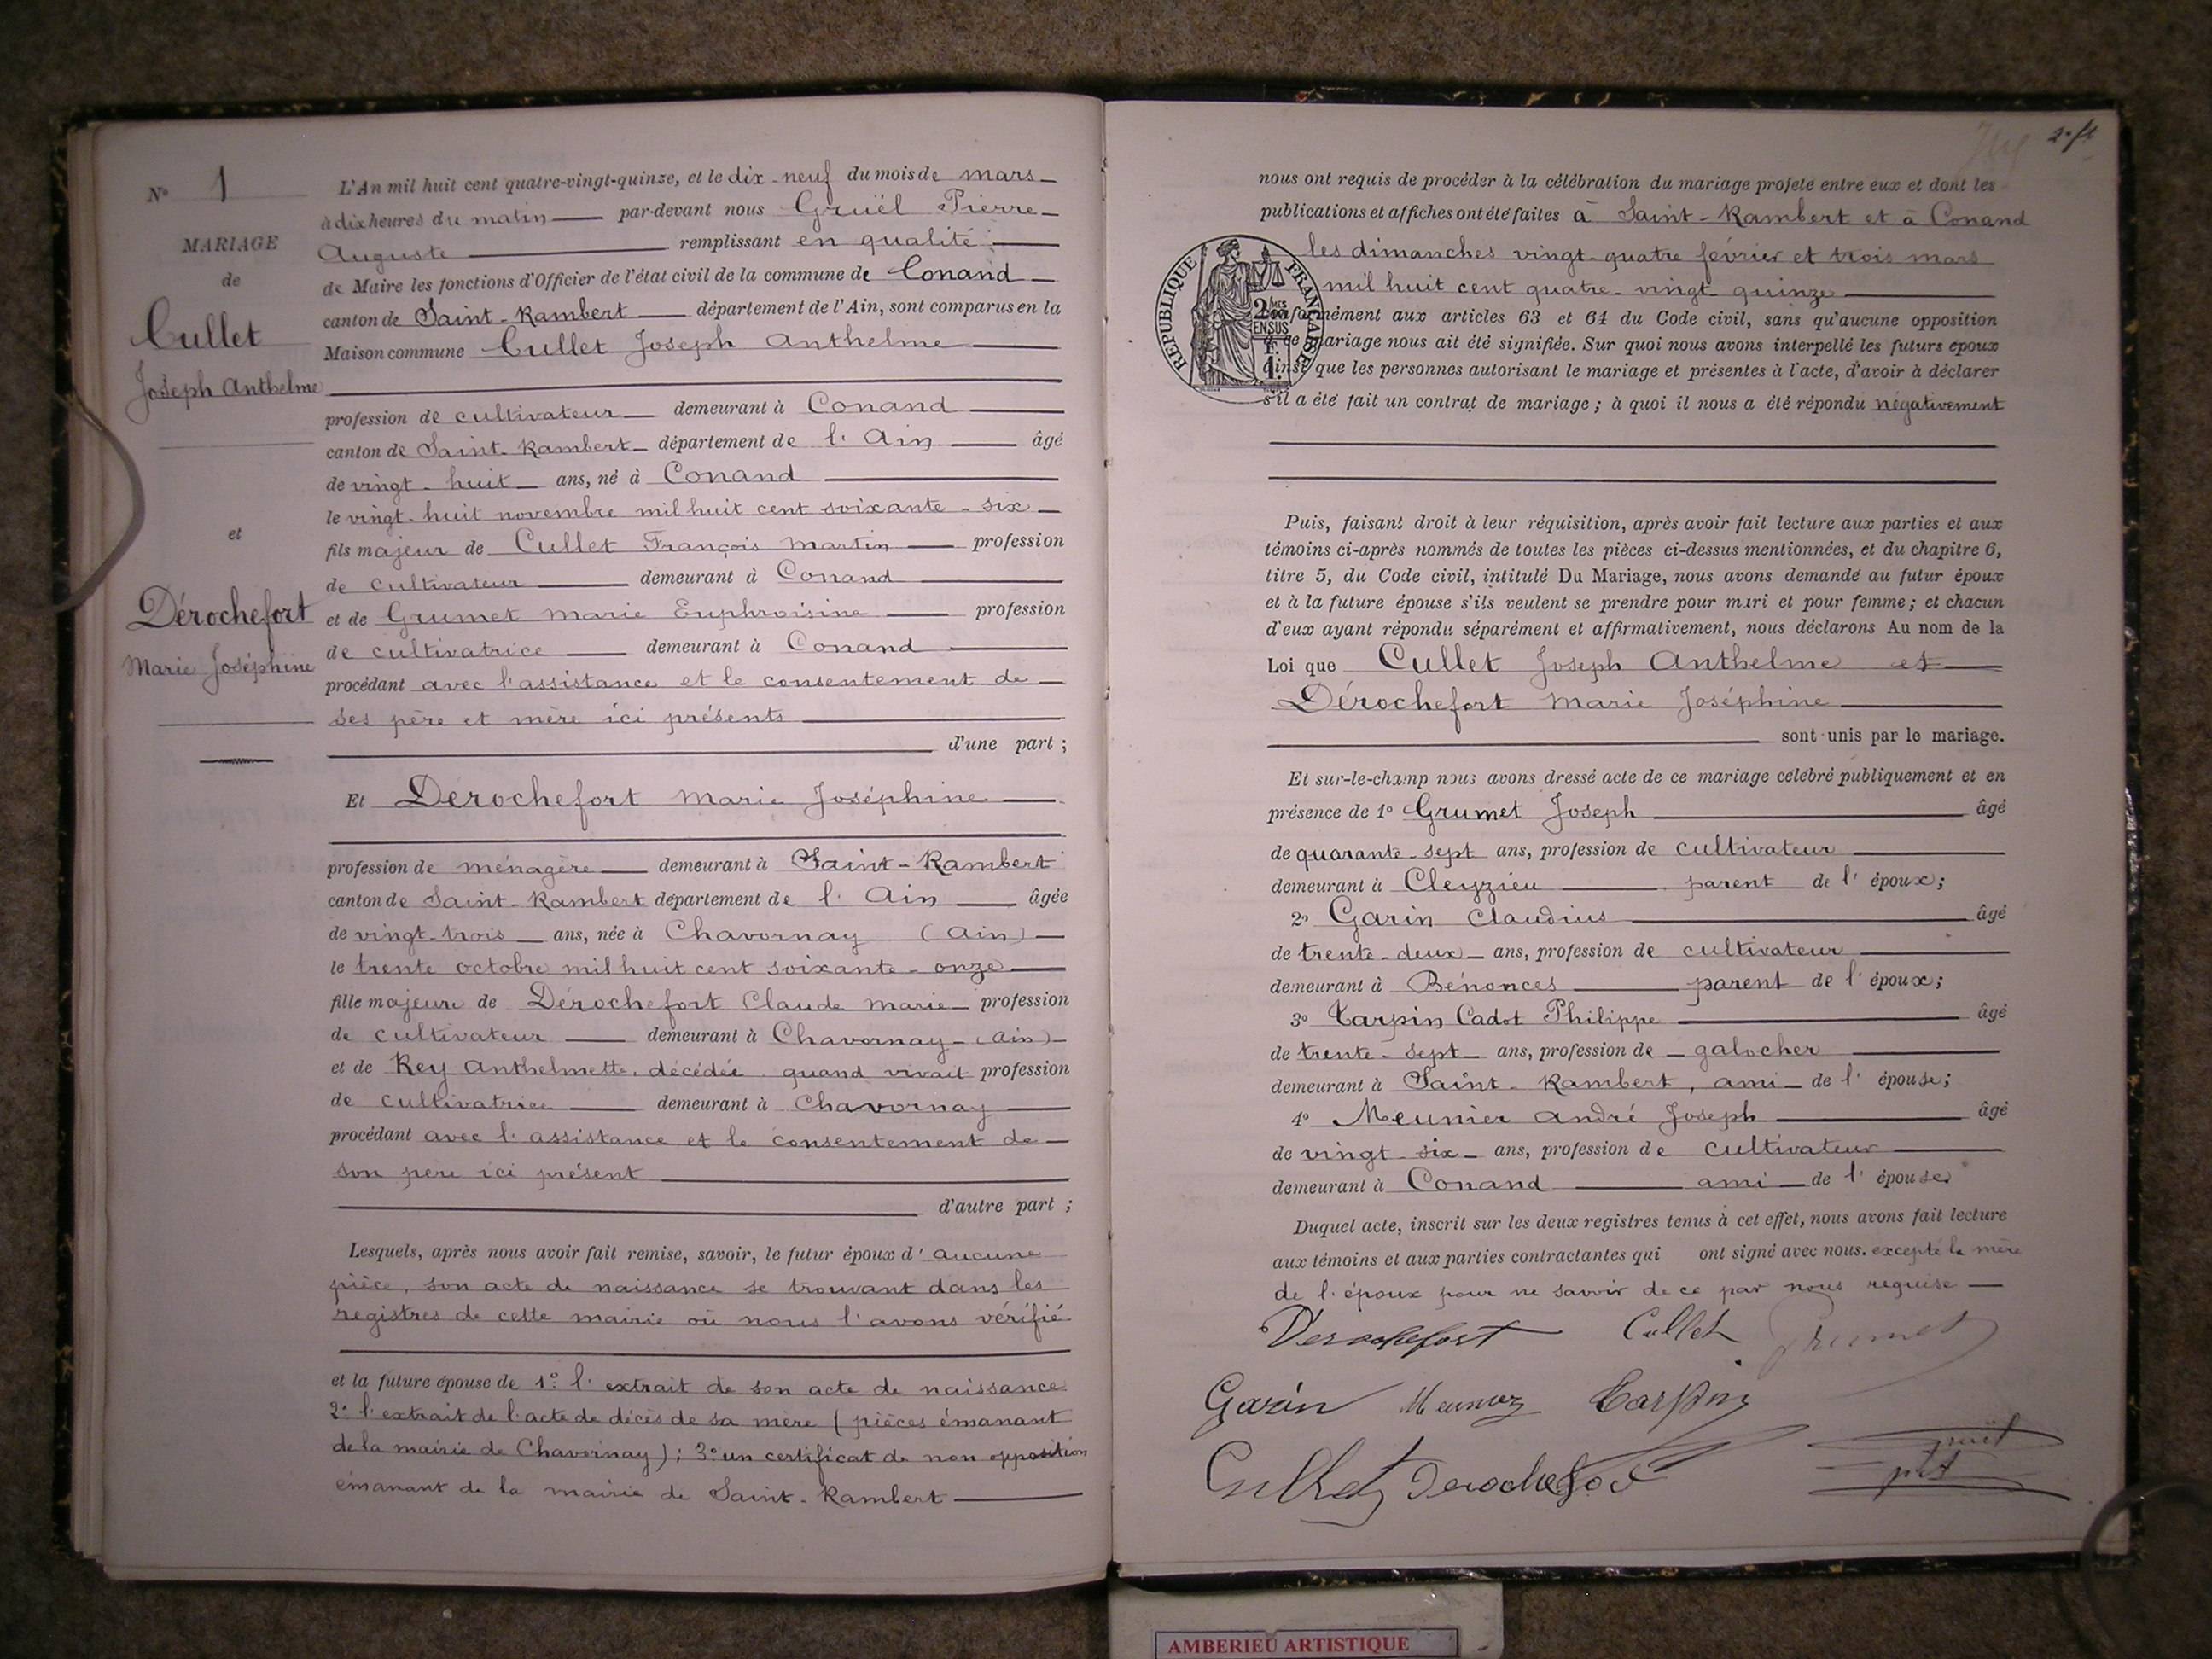 N° 1
MARIAGE
de
Cullet
Joseph Anthelme
et
Dérochefort
Marie Joséphine
L'An mil huit cent quatre-vingt-quinze, et le dix-neuf du mois de mars
à dix heures du matin par-devant nous Gruël Pierre
Auguste remplissant en qualité
de Maire les fonctions d'Officier de l'état civil de la commune de Conand
canton de Saint-Rambert département de l'Ain, sont comparus en la
Maison commune Cullet Joseph Anthelme
profession de cultivateur demeurant à Conand
canton de Saint-Rambert département de l'Ain âgé
de vingt-huit ans, né à Conand
le vingt-huit novembre mil huit cent soixante-six
fils majeur de Cullet François Martin profession
de cultivateur demeurant à Conand
et de Grumet Marie Euphroisine profession
de cultivatrice demeurant à Conand
procédant avec l'assistance et le consentement de
ses père et mère ici présents
d'une part ;
Et Dérochefort Marie Joséphine
profession de ménagère demeurant à Saint-Rambert
canton de Saint-Rambert département de l'Ain âgée
de vingt-trois ans, née à Chavornay (Ain)
le trente octobre mil huit cent soixante-onze
fille majeure de Dérochefort Claude Marie profession
de cultivateur demeurant à Chavornay (Ain)
et de Rey Anthelmette, décédée quand vivait profession
de cultivatrice demeurant à Chavornay
procédant avec l'assistance et le consentement de
son père ici présent
d'autre part ;
Lesquels, après nous avoir fait remise, savoir, le futur époux d'aucune
pièce, son acte de naissance se trouvant dans les
registres de cette mairie où nous l'avons vérifié
et la future épouse de 1° l'extrait de son acte de naissance
2° l'extrait de l'acte de décès de sa mère (pièces émanant
de la mairie de Chavornay) ; 3° un certificat de non opposition
émanant de la mairie de Saint-Rambert
nous ont requis de procéder à la célébration du mariage projeté entre eux et dont les
publications et affiches ont été faites à Saint-Rambert et à Conand
les dimanches vingt-quatre février et trois mars
mil huit cent quatre-vingt-quinze
conformément aux articles 63 et 64 du Code civil, sans qu'aucune opposition
à ce mariage nous ait été signifiée. Sur quoi nous avons interpellé les futurs époux
ainsi que les personnes autorisant le mariage et présentes à l'acte, d'avoir à déclarer
s'il a été fait un contrat de mariage ; à quoi il nous a été répondu négativement
RÉPUBLIQUE FRANÇAISE
Puis, faisant droit à leur réquisition, après avoir fait lecture aux parties et aux
témoins ci-après nommés de toutes les pièces ci-dessus mentionnées, et du chapitre 6,
titre 5, du Code civil, intitulé Du Mariage, nous avons demandé au futur époux
et à la future épouse s'ils veulent se prendre pour mari et pour femme ; et chacun
d'eux ayant répondu séparément et affirmativement, nous déclarons Au nom de la
Loi que Cullet Joseph Anthelme et
Dérochefort Marie Joséphine
sont unis par le mariage.
Et sur-le-champ nous avons dressé acte de ce mariage célébré publiquement et en
présence de 1° Grumet Joseph âgé
de quarante-sept ans, profession de cultivateur
demeurant à Cleyzieu parent de l'époux ;
2° Garin Claudius âgé
de trente-deux ans, profession de cultivateur
demeurant à Bénonces parent de l'époux ;
3° Tarpin Cadot Philippe âgé
de trente-sept ans, profession de galocher
demeurant à Saint-Rambert, ami de l'épouse ;
4° Meunier André Joseph âgé
de vingt-six ans, profession de cultivateur
demeurant à Conand ami de l'épouse
Duquel acte, inscrit sur les deux registres tenus à cet effet, nous avons fait lecture
aux témoins et aux parties contractantes qui ont signé avec nous. excepté la mère
de l'époux pour ne savoir de ce par nous requise
Derochefort Cullet Grumet
Garin Meunier Tarpin
Cullet Derochefort Gruël
AMBERIEU ARTISTIQUE